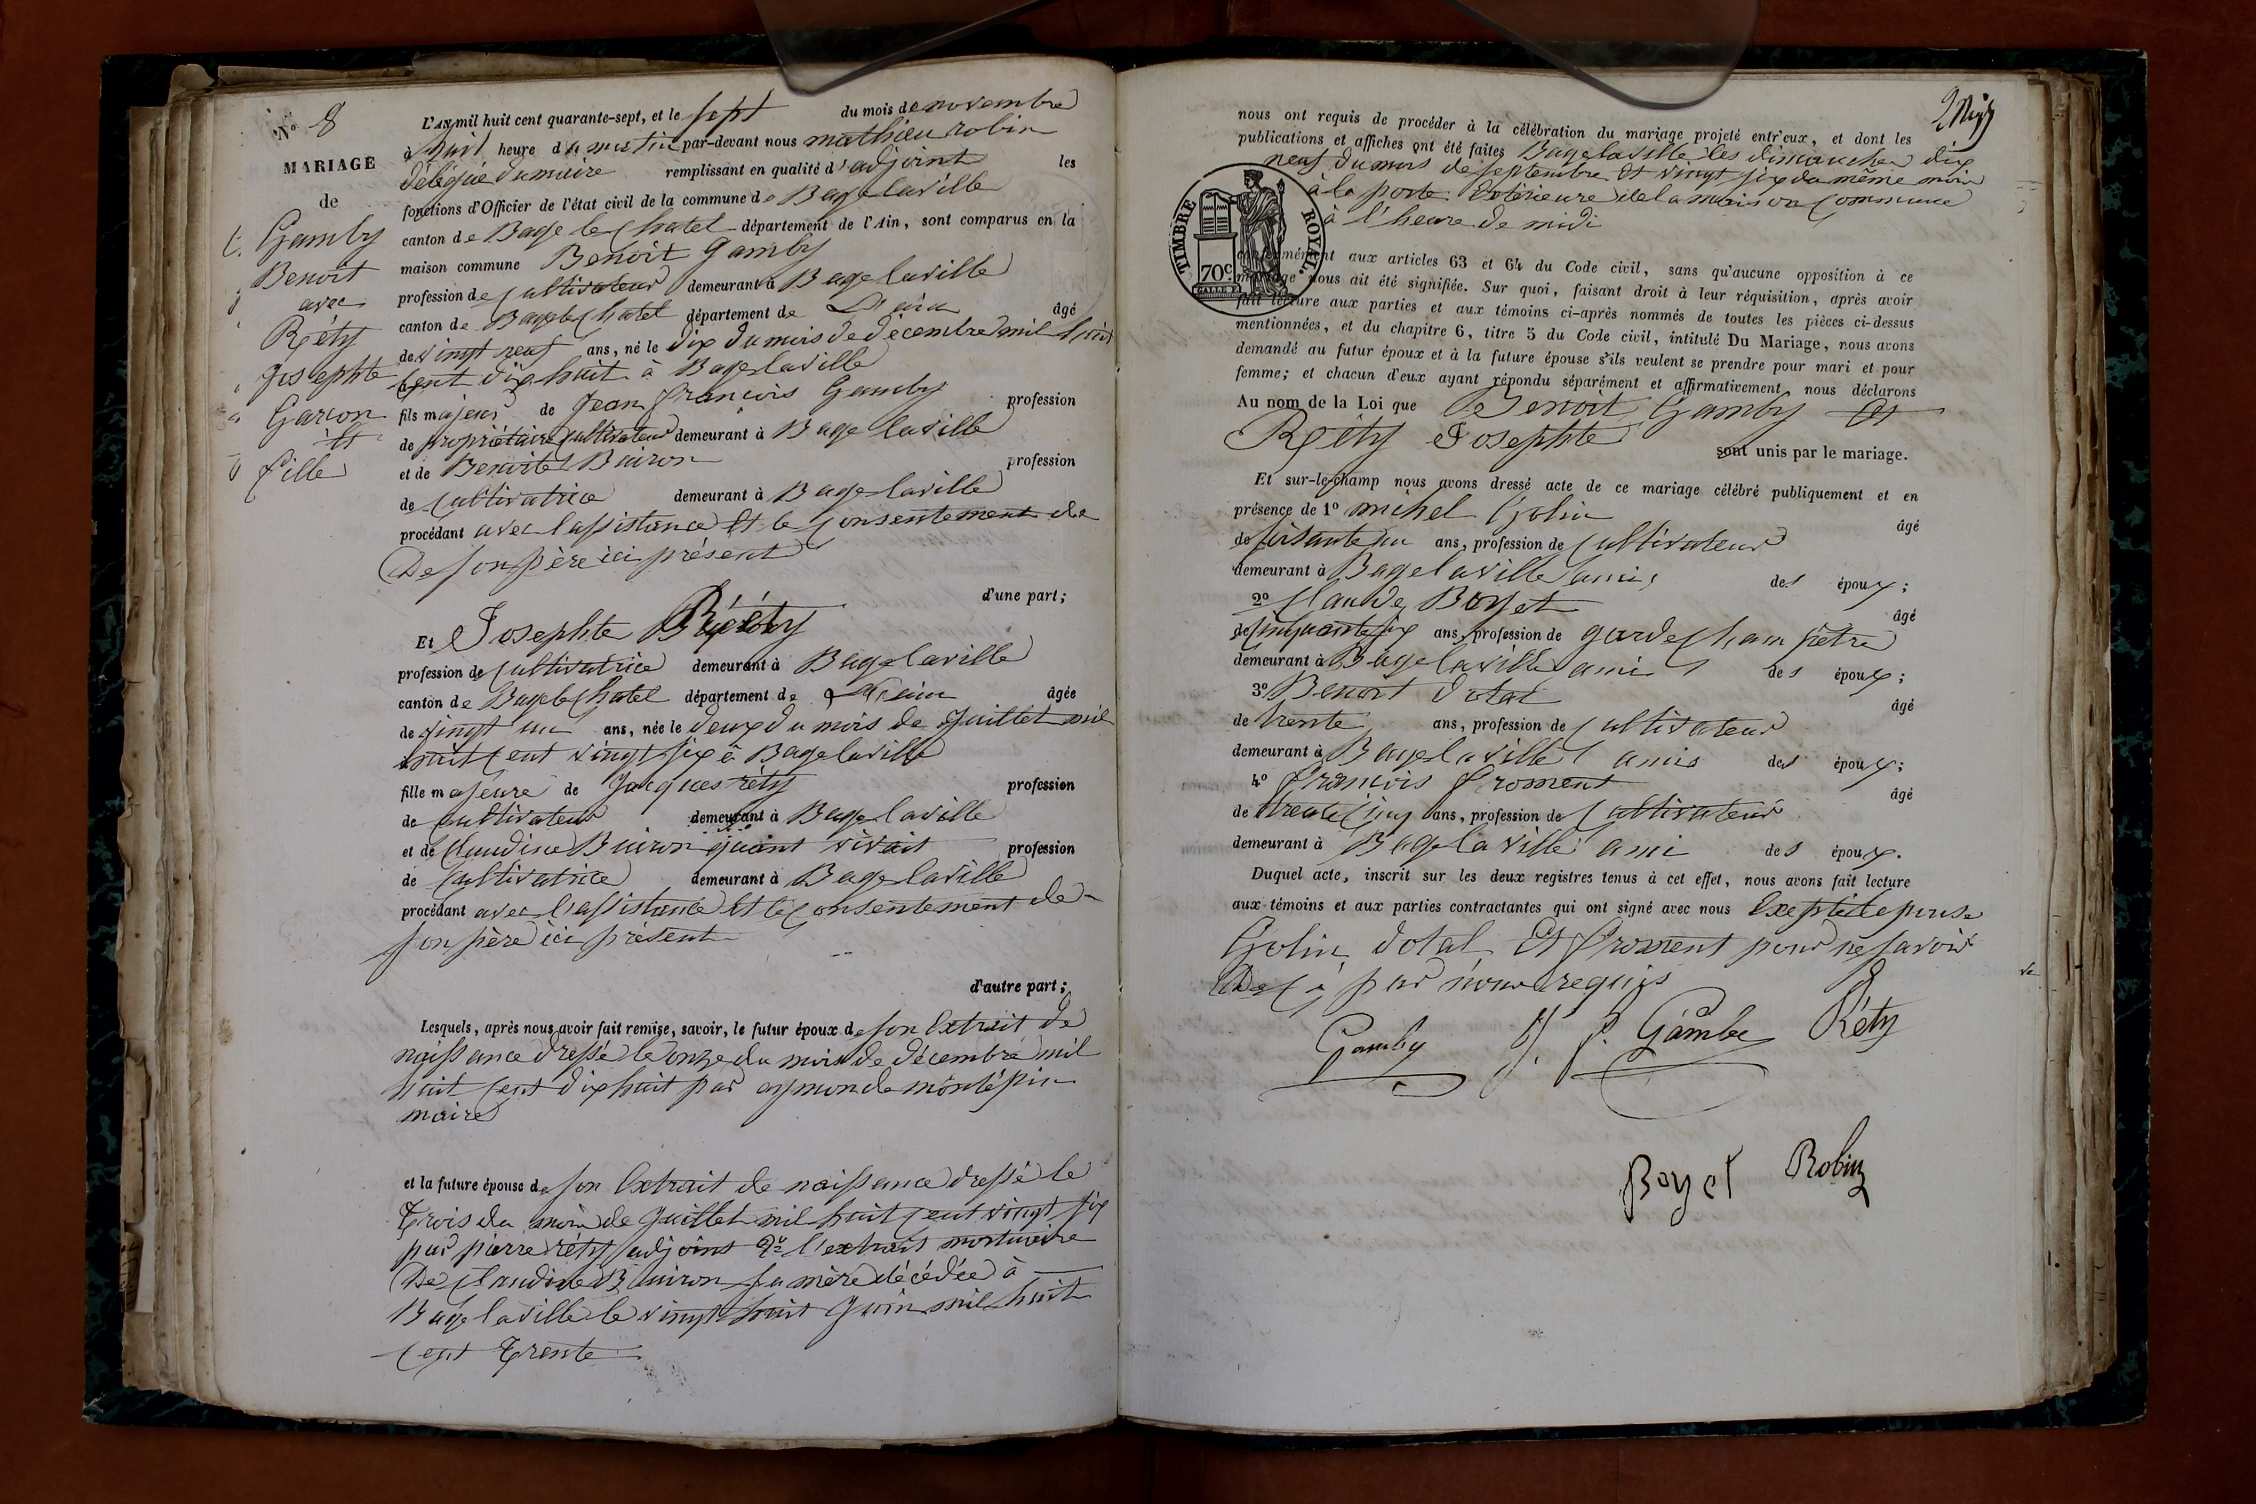 N° 8
MARIAGE
de
Gamby
Benoit
avec
Réty
Josephte
Garcon
et
fille
L'AN mil huit cent quarante-sept, et le sept du mois de novembre
à huit heure du matin par-devant nous mathieu robin
délégué du maire remplissant en qualité d'adjoint les
fonctions d'Officier de l'état civil de la commune de Bage laville
canton de Bage le Chatel département de l'Ain, sont comparus en la
maison commune Benoit Gamby
profession de cultivateur demeurant à Bage laville
canton de Bage le Chatel département de L'ain âgé
de vingt neuf ans, né le dix du mois de decembre mil huit
Cent dix huit à Bage laville
fils majeur de Jean francois Gamby profession
de propriétaire cultivateur demeurant à Bage laville
et de Benoite Buiron profession
de Cultivatrice demeurant à Bage laville
procédant avec l'assistance et le Consentement de
De son père ici présent
d'une part;
Et Josephte Réty
profession de Cultivatrice demeurant à Bage laville
canton de Bage le Chatel département de L'ain âgée
de vingt un ans, née le deux du mois de Juillet mil
huit Cent vingt six à Bage laville
fille majeure de Jacques réty profession
de cultivateur demeurant à Bage laville
et de Claudine Buiron quant vivait profession
de Cultivatrice demeurant à Bage laville
procédant avec l'assistance et le Consentement de
son père ici présent
d'autre part;
Lesquels, après nous avoir fait remise, savoir, le futur époux de son Extrait de
naissance dressé le onze du mois de décembre mil
huit Cent dix huit par aymon de montépin
maire
et la future épouse de son Extrait de naissance dressé le
Trois du mois de Juillet mil huit Cent vingt six
par pierre réty adjoint 2° l'extrait mortuaire
De Claudine Buiron sa mère décédée à
Bage laville le vingt huit Juin mil huit
Cent Trente
nous ont requis de procéder à la célébration du mariage projeté entr'eux, et dont les
publications et affiches ont été faites Bage laville les dimanches dix
neuf du mois de septembre Et vingt six du même mois
à la porte Extérieure de la maison Commune
à l'heure de midi
TIMBRE ROYAL.
70c
aux articles 63 et 64 du Code civil, sans qu'aucune opposition à ce
mariage nous ait été signifiée. Sur quoi, faisant droit à leur réquisition, après avoir
fait lecture aux parties et aux témoins ci-après nommés de toutes les pièces ci-dessus
mentionnées, et du chapitre 6, titre 5 du Code civil, intitulé Du Mariage, nous avons
demandé au futur époux et à la future épouse s'ils veulent se prendre pour mari et pour
femme; et chacun d'eux ayant répondu séparément et affirmativement, nous déclarons
Au nom de la Loi que Benoit Gamby Et
Réty Josephte sont unis par le mariage.
Et sur-le-champ nous avons dressé acte de ce mariage célébré publiquement et en
présence de 1° michel Golin âgé
de soisante un ans, profession de Cultivateur
demeurant à Bage laville amis des époux;
2° Claude Boyet âgé
de cinquante six ans, profession de garde Champêtre
demeurant à Bage laville ami des époux;
3° Benoit dotal âgé
de trente ans, profession de Cultivateur
demeurant à Bage laville amis des époux;
4° francois froment âgé
de trente Cinq ans, profession de Cultivateur
demeurant à Bage la ville ami des époux.
Duquel acte, inscrit sur les deux registres tenus à cet effet, nous avons fait lecture
aux témoins et aux parties contractantes qui ont signé avec nous Exepté
Golin dotal Et froment pour ne savoir
De Ce par nous requis
Gamby J. f. Gambe Réty
Boyet Robin